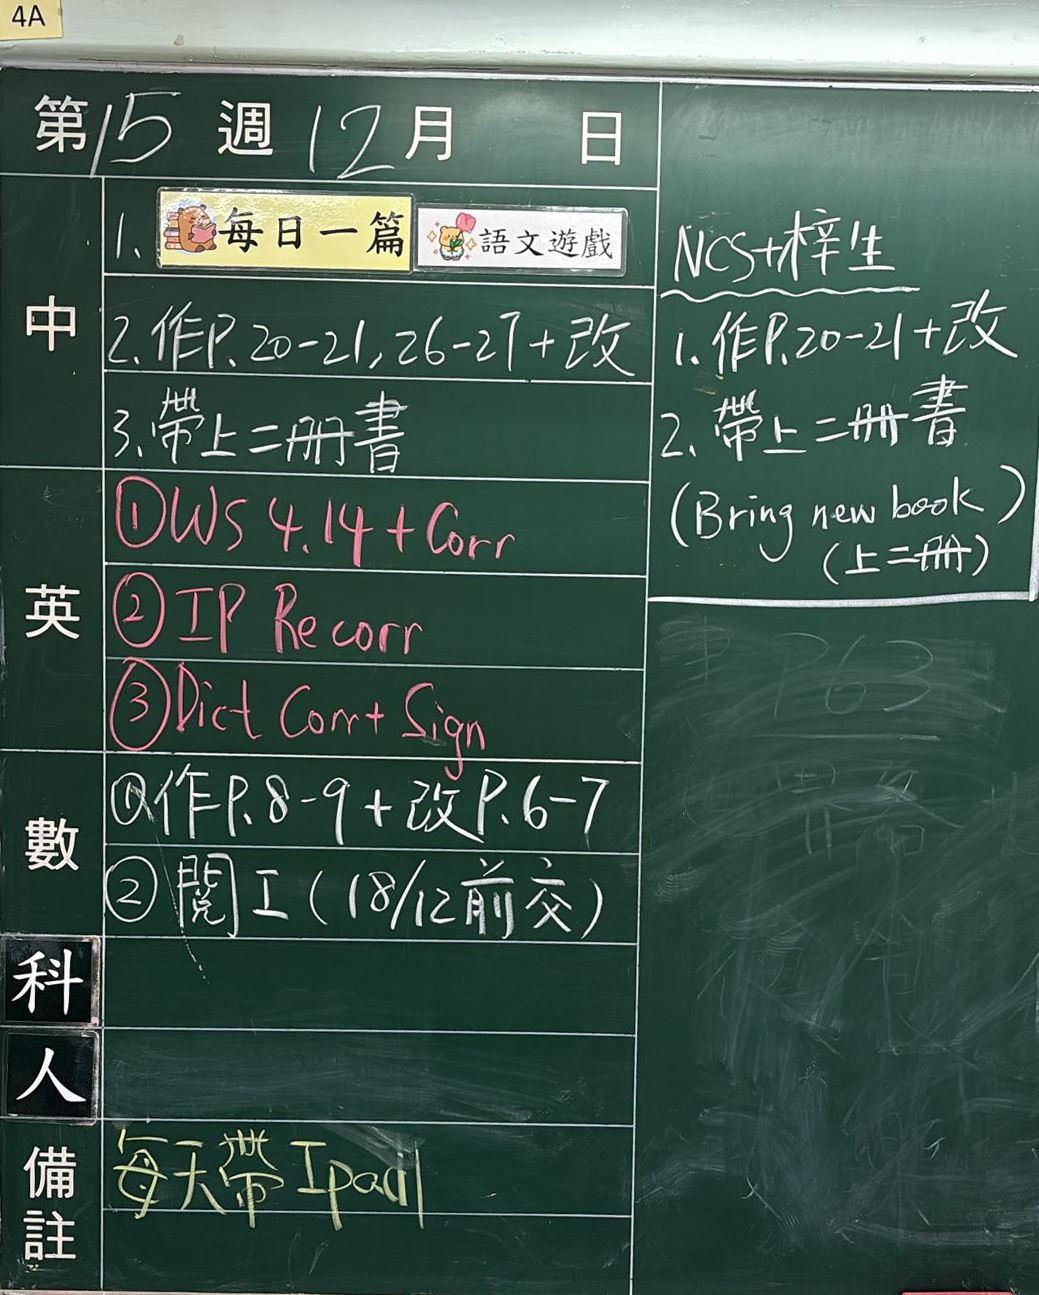 4A
第15週12月 日
中
1. 每日一篇 語文遊戲
2.作P.20-21,26-27+改
3.帶上二冊書
英
①WS 4.14+Corr
②IP Recorr
③Dict Corr+ Sign
數
①作P.8-9+改P.6-7
②閱工(18/12前交)
科
人
備註
每天帶Ipad
NCS+梓生
1.作P.20-21+改
2.帶上二冊書
(Bring new book)
(上二冊)
P63